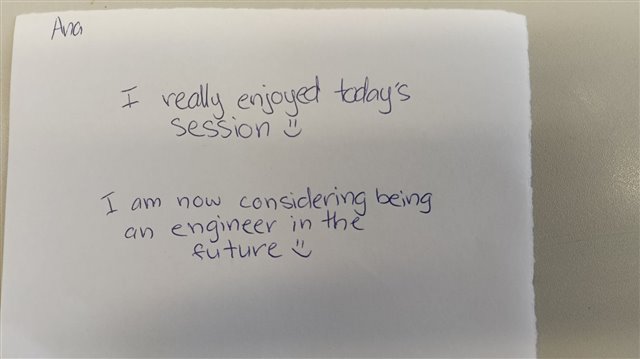 Ana
I really enjoyed today's
session :)
I am now considering being
an engineer in the
future :)